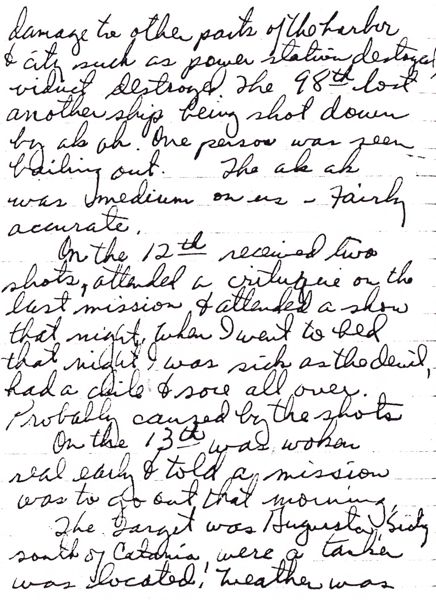 damage to other parts of the harbor
& city such as power station destroyed,
viduct destroyed. The 98th lost
another ship being shot down
by ak ak. One person was seen
bailing out. The ak ak
was medium on us - Fairly
accurate.
On the 12th received two
shots, attended a crituque on the
last mission & attended a show
that night, when I went to bed
that night I was sick as the devil,
had a chile & sore all over.
Probably caused by the shots
On the 13th was woken
real early & told a mission
was to go out that morning.
The target was Augusta, Sicily
south of Catania were a tanker
was located. Weather was